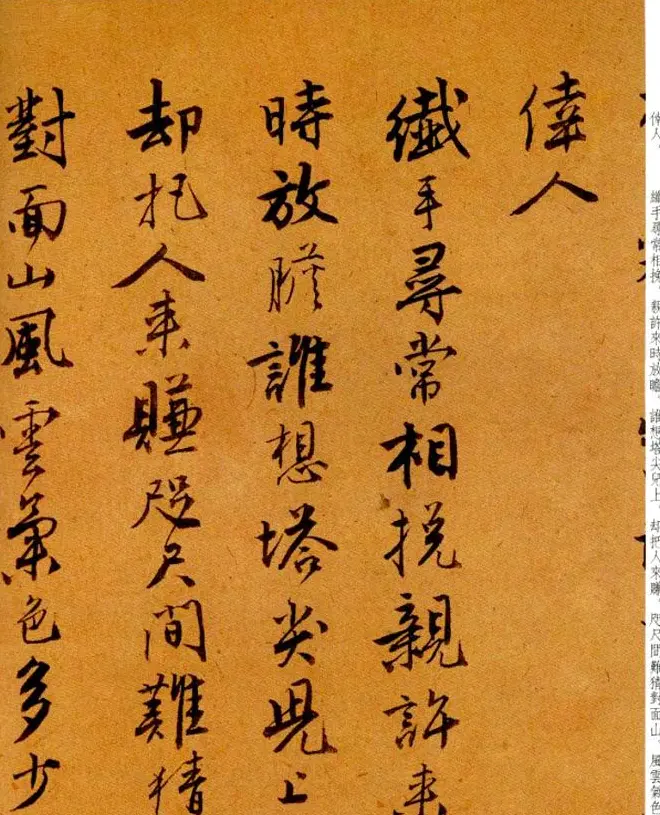 偉人
纖手尋常相挽親許來
時放膽誰想塔尖兒上
却把人來賺咫尺間難猜
對面山風雲氣色多少
纖手尋常相挽。親許來時放瞻。誰想塔尖兒上。却把人來賺。咫尺間難猜對面山。風雲氣色